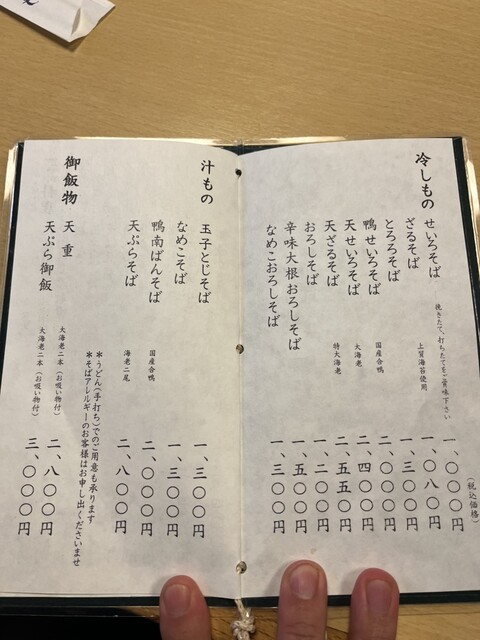 冷しもの
(税込価格)
せいろそば 挽きたて、打ちたてをご賞味下さい 一、〇〇〇円
ざるそば 上質海苔使用 一、〇八〇円
とろろそば 一、三〇〇円
鴨せいろそば 国産合鴨 二、〇〇〇円
天せいろそば 大海老 二、四〇〇円
天ざるそば 特大海老 二、五五〇円
おろしそば 一、二〇〇円
辛味大根おろしそば 一、五〇〇円
なめこおろしそば 一、三〇〇円
汁もの
玉子とじそば 一、三〇〇円
なめこそば 一、三〇〇円
鴨南ばんそば 国産合鴨 二、〇〇〇円
天ぷらそば 海老二尾 二、八〇〇円
*うどん(手打ち)でのご用意も承ります
*そばアレルギーのお客様はお申し出くださいませ
御飯物
天重 大海老二本(お吸い物付) 二、八〇〇円
天ぷら御飯 大海老二本(お吸い物付) 三、〇〇〇円